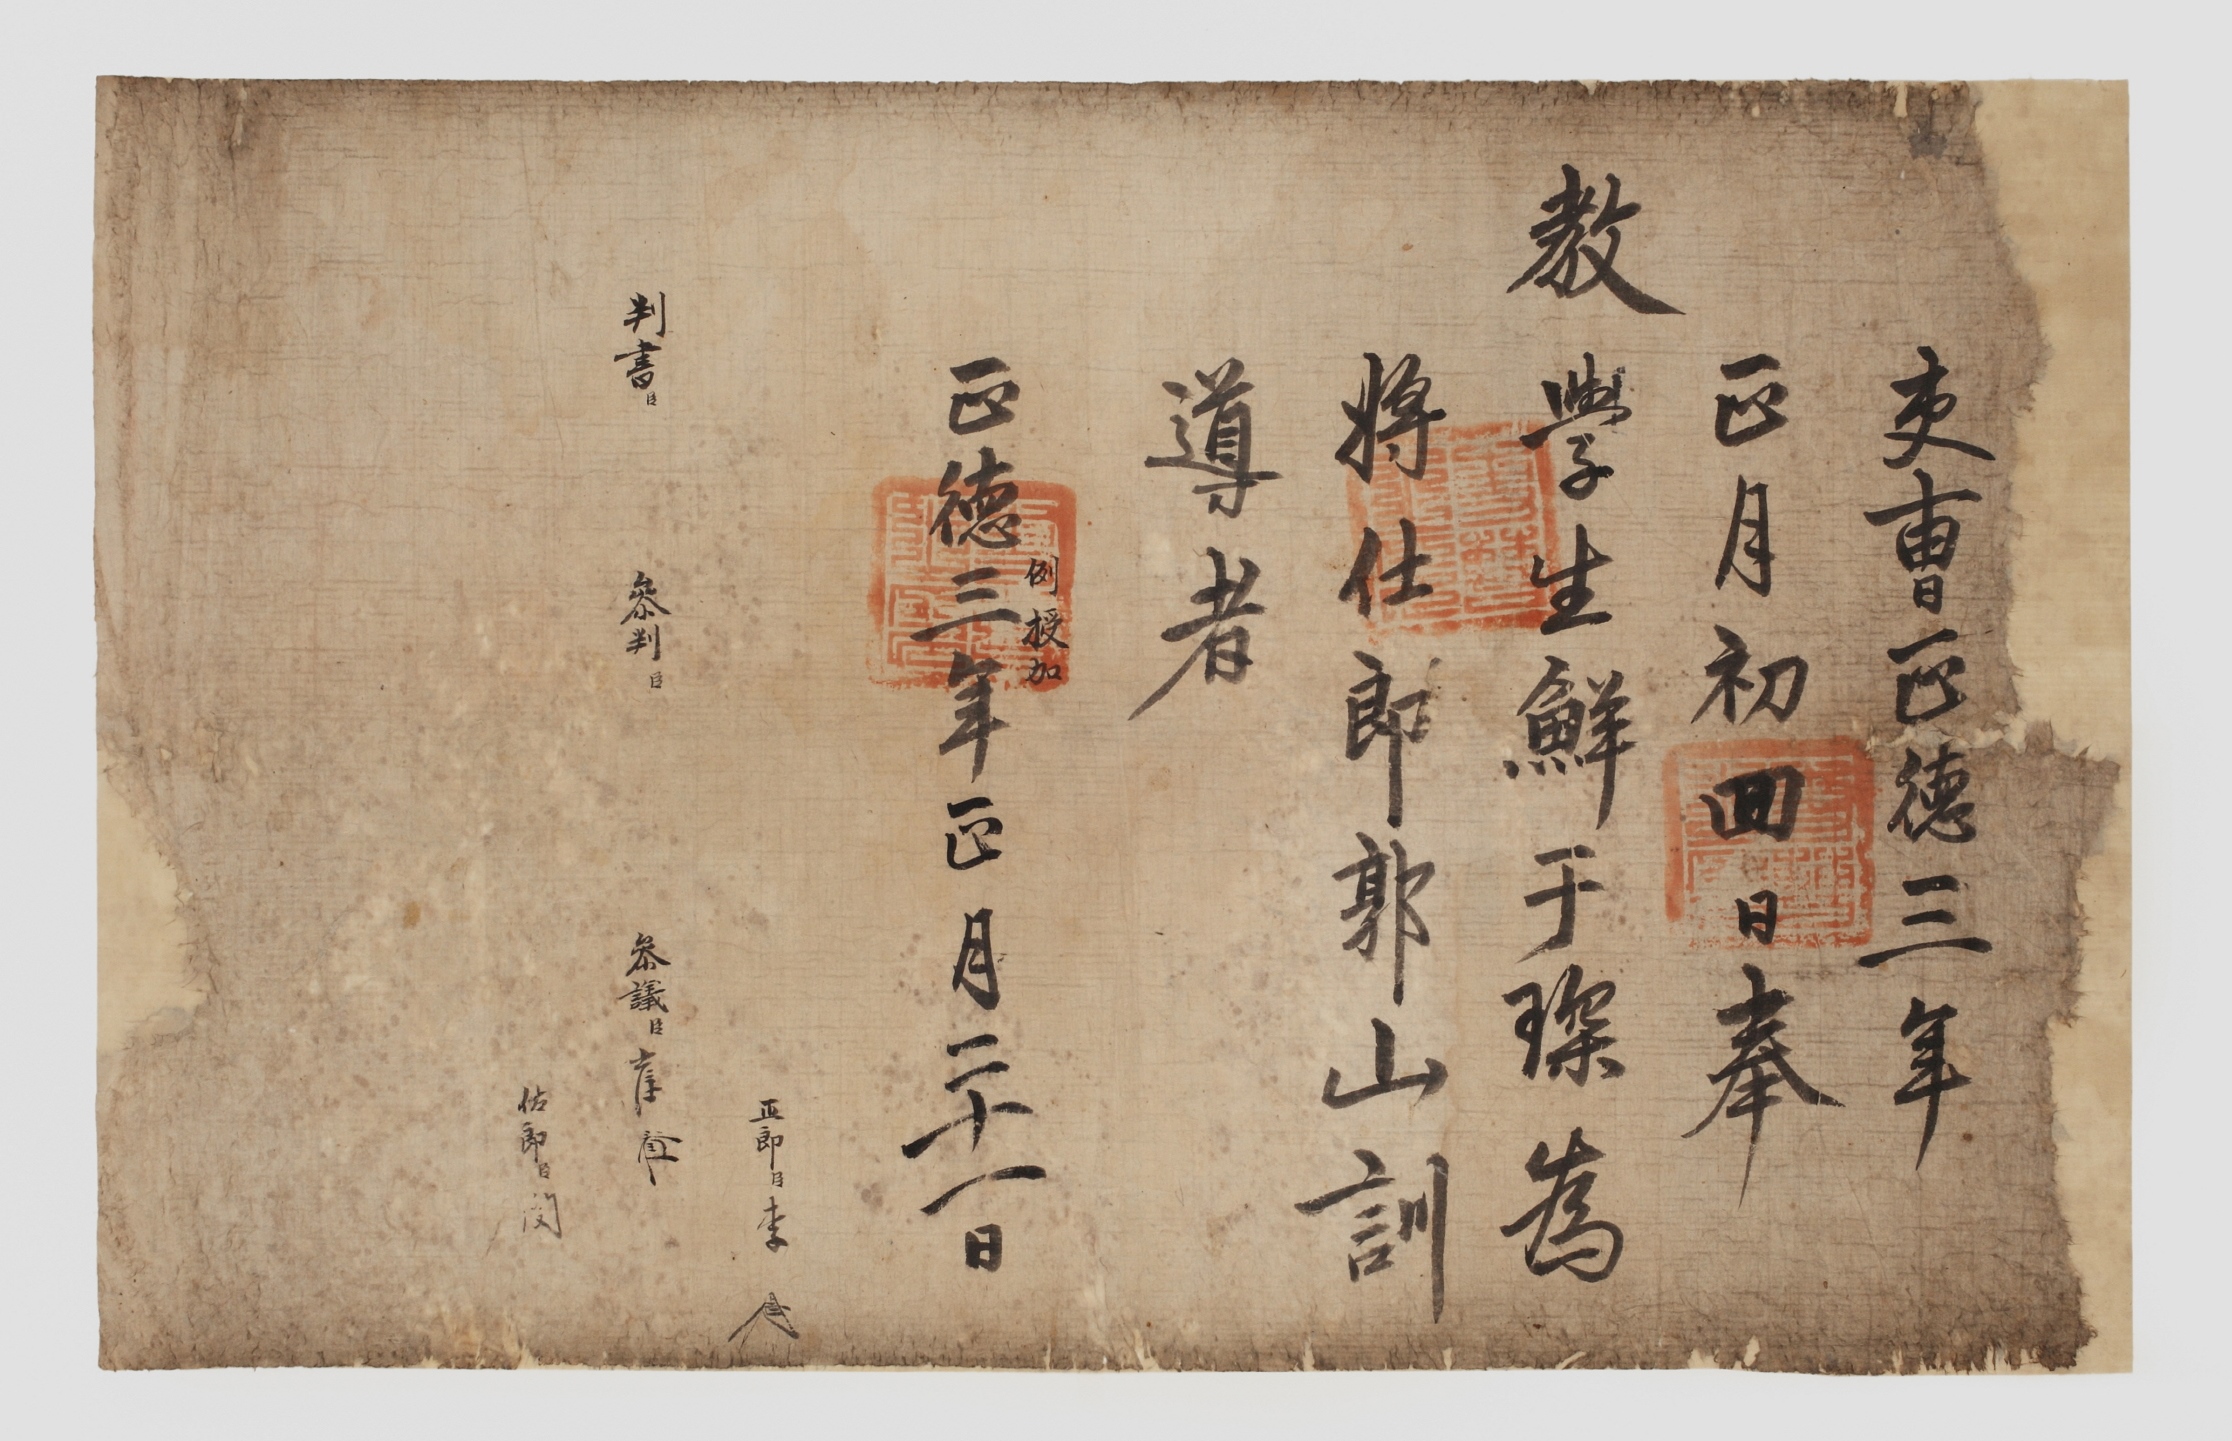 吏曺正德三年
正月初四日奉
教
學生鮮于琛爲
將仕郎郭山訓
導者
正德三年正月二十一日
例授加
正郎臣李
判書臣
參判臣
參議臣
佐郎臣閔